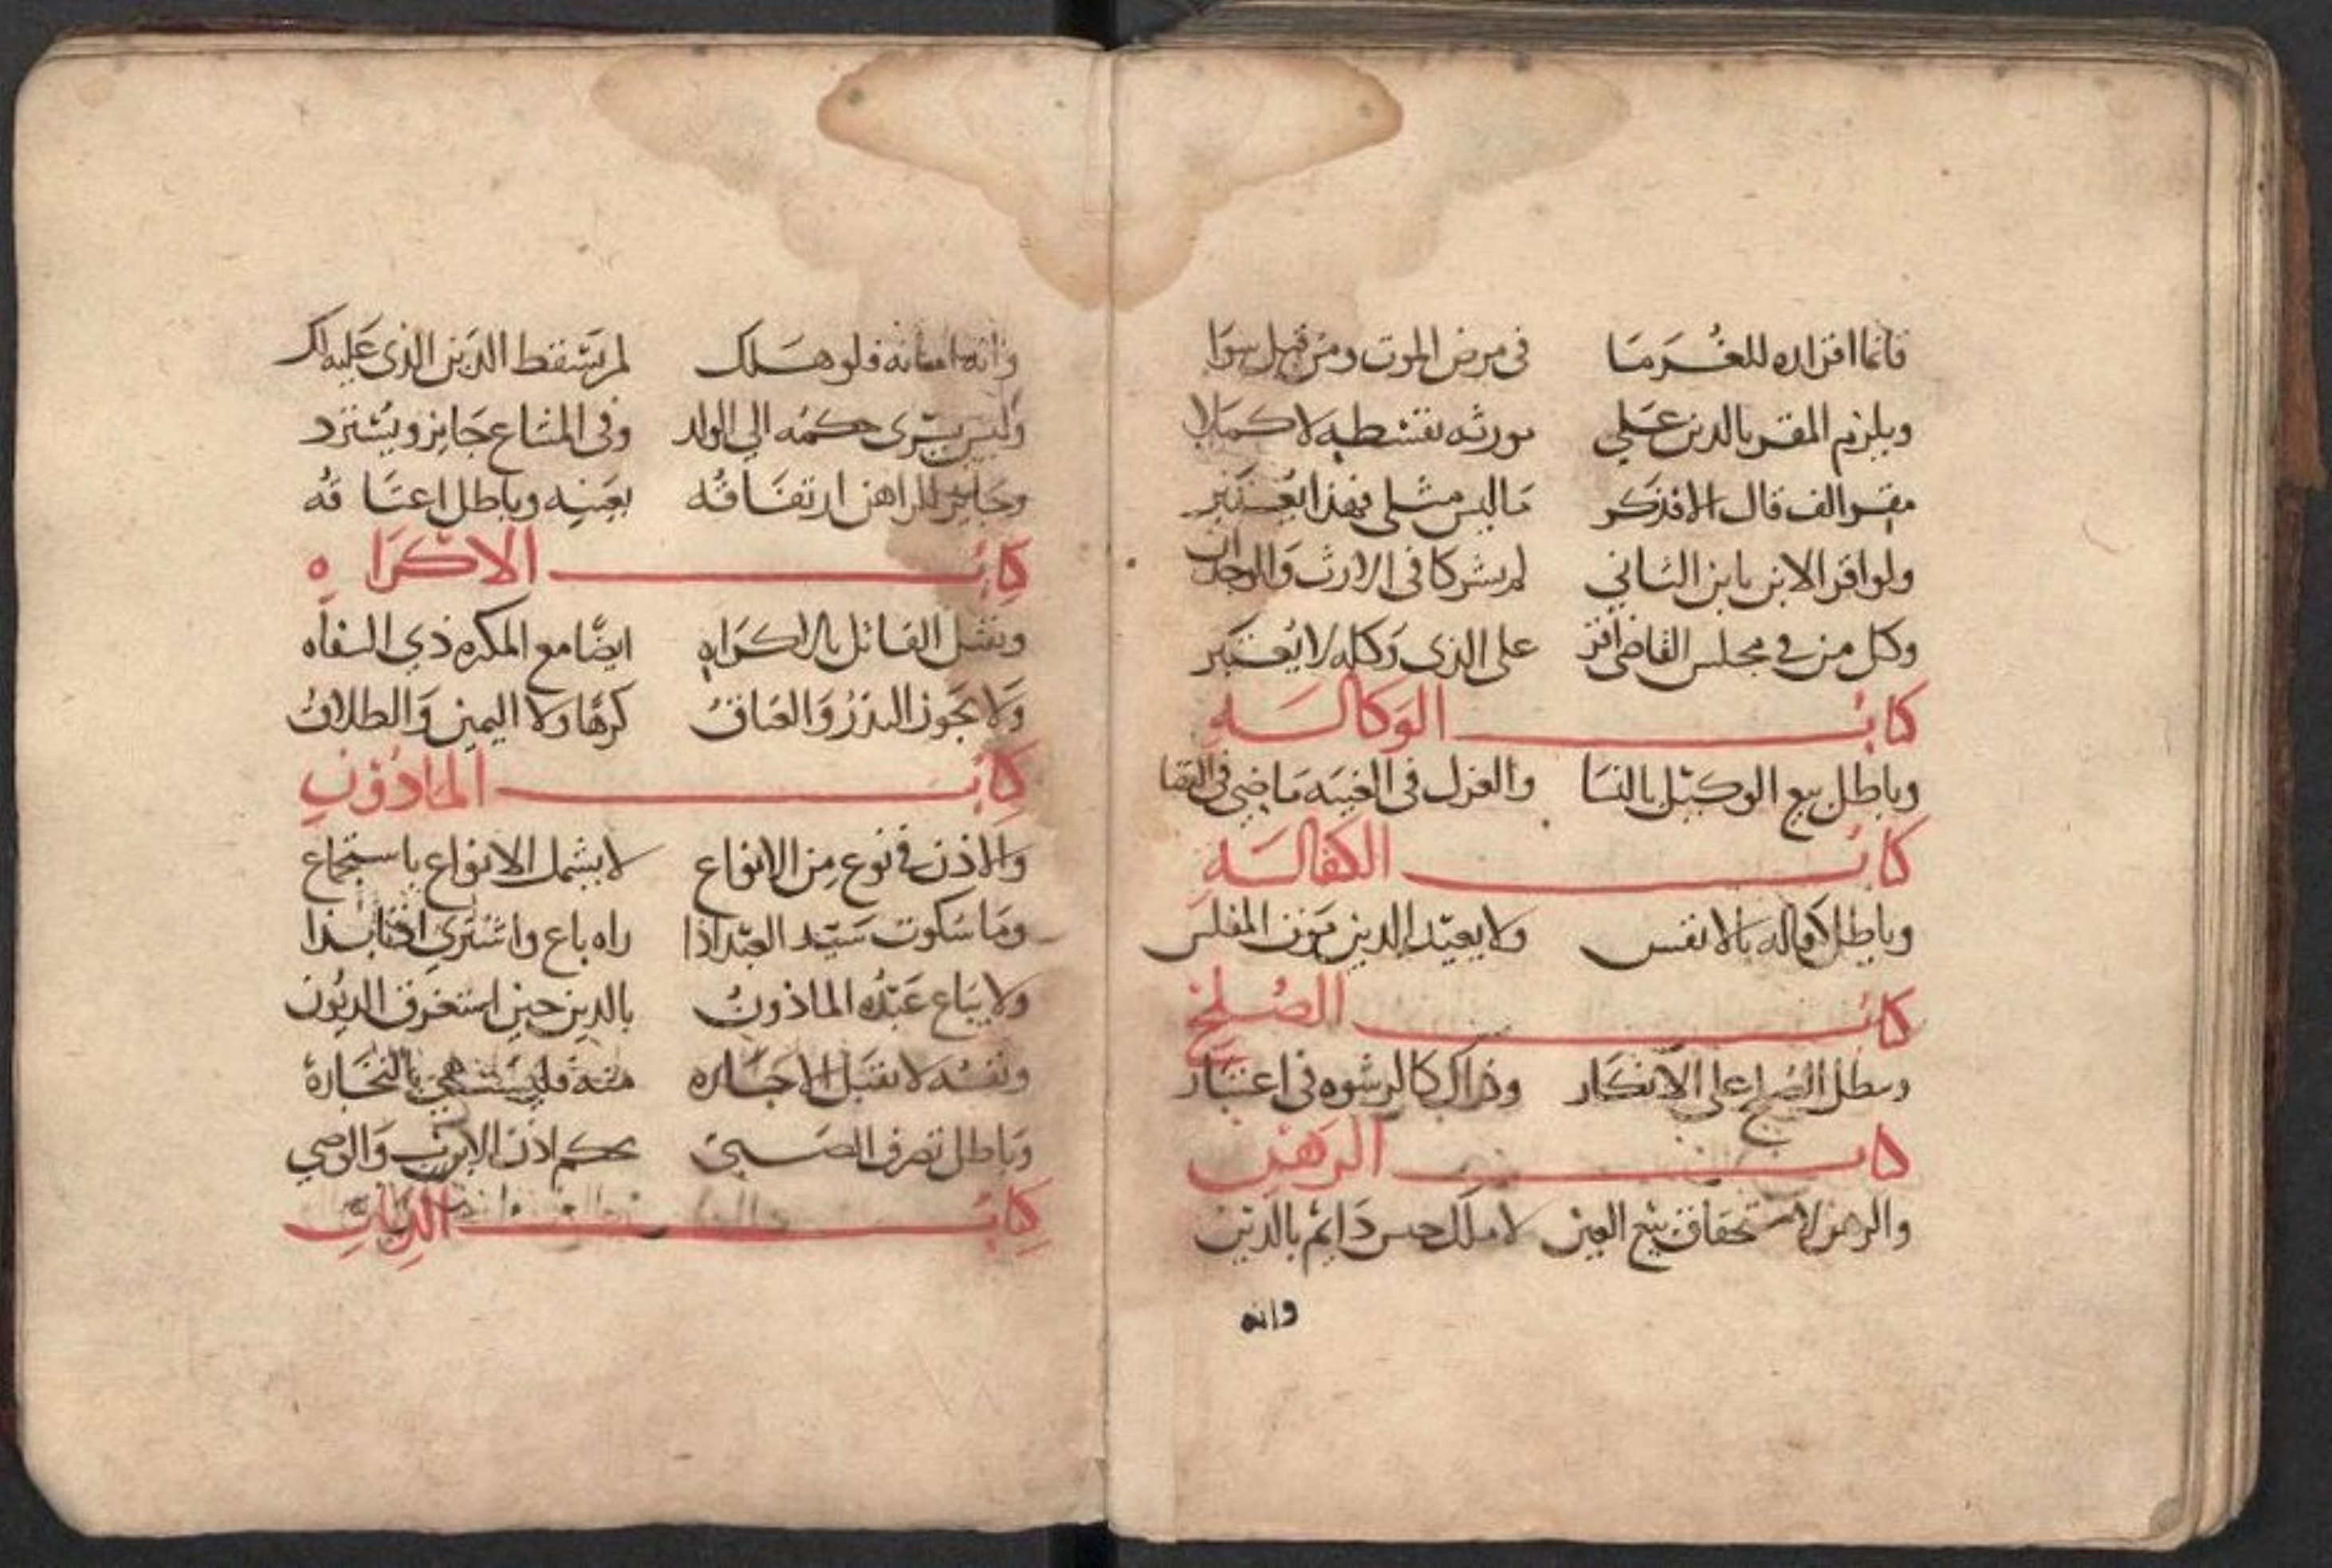 فانما اقراره للغرما في مرض الموت ومن قبل سوا
ويلزم المقر بالدين علي مورثه بقسطه لا كملا
مقر الف قال الا فذكر ما ليس مثلي فهذا يعتبر
ولو اقر الابن بابن الثاني لم يشركا في الارث والوجدان
وكل من في مجلس القاضي اقر على الذي وكله لا يعتبر
كتاب الوكالة
وباطل بيع الوكيل بالنسا والعزل في الغيبة ماضي في القضا
كتاب الكفالة
وباطل كفاله بالانفس ولا يعيد الدين موت المفلس
كتاب الصلح
ويبطل الصلح على الانكار وذاك كالرشوه في اعتبار
كتاب الرهن
والرهن لاستحقاق بيع العين لا ملك حبس دايم بالدين
وانه
وانه امانه فلو هلك لم يسقط الدين الذي عليه لك
وليس يسرى حكمه الى الولد وفي المشاع جايز ويسترد
وجايز للراهن ارتفاقه بعينه وباطل اعتاقه
كتاب الاكراه
ويقتل القاتل بالاكراه ايضا مع المكره ذي السفاه
ولا يجوز النذر والعتاق كرها ولا اليمين والطلاق
كتاب الماذون
والاذن في نوع من الانواع لا يشمل الانواع باستجماع
وما سكوت سيد العبد اذا راه باع واشترى اذنا بذا
ولا يباع عبده الماذون بالدين حين استغرق الديون
ونفسه لا تقبل الاجاره منه فليستنهي بالتجارة
وباطل تصرف الصبي بحكم اذن الاب والوصي
كتاب الديات